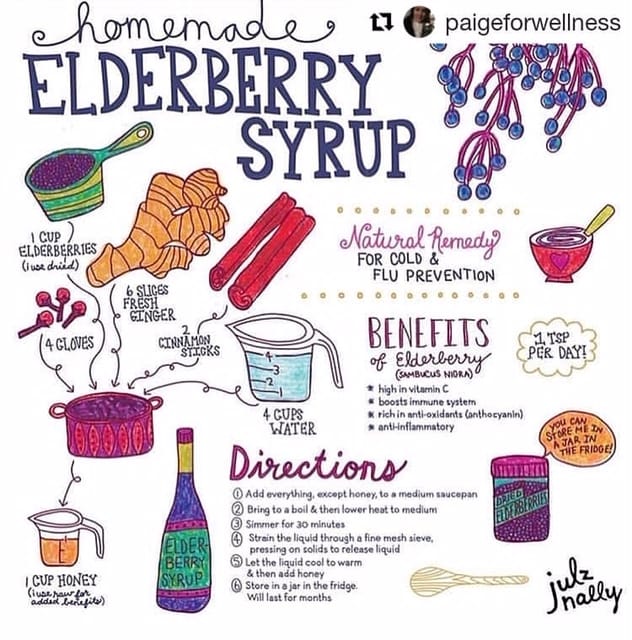 homemade
paigeforwellness
ELDERBERRY
SYRUP
1 CUP
ELDERBERRIES
(i use dried)
6 SLICES
FRESH
GINGER
4 CLOVES
2
CINNAMON
STICKS
4
3
2
4 CUPS
WATER
Natural Remedy
FOR COLD &
FLU PREVENTION
BENEFITS
of Elderberry
(SAMBUCUS NIGRA)
* high in vitamin C
* boosts immune system
* rich in anti-oxidants (anthocyanin)
* anti-inflammatory
1 TSP
PER DAY!
YOU CAN
STORE ME IN
A JAR IN
THE FRIDGE!
DRIED
ELDERBERRIES
Directions
① Add everything, except honey, to a medium saucepan
② Bring to a boil & then lower heat to medium
③ Simmer for 30 minutes
④ Strain the liquid through a fine mesh sieve,
pressing on solids to release liquid
⑤ Let the liquid cool to warm
& then add honey
⑥ Store in a jar in the fridge.
Will last for months
ELDER-
BERRY
SYRUP
1 CUP HONEY
(i use raw for
added benefits)
julz
nally